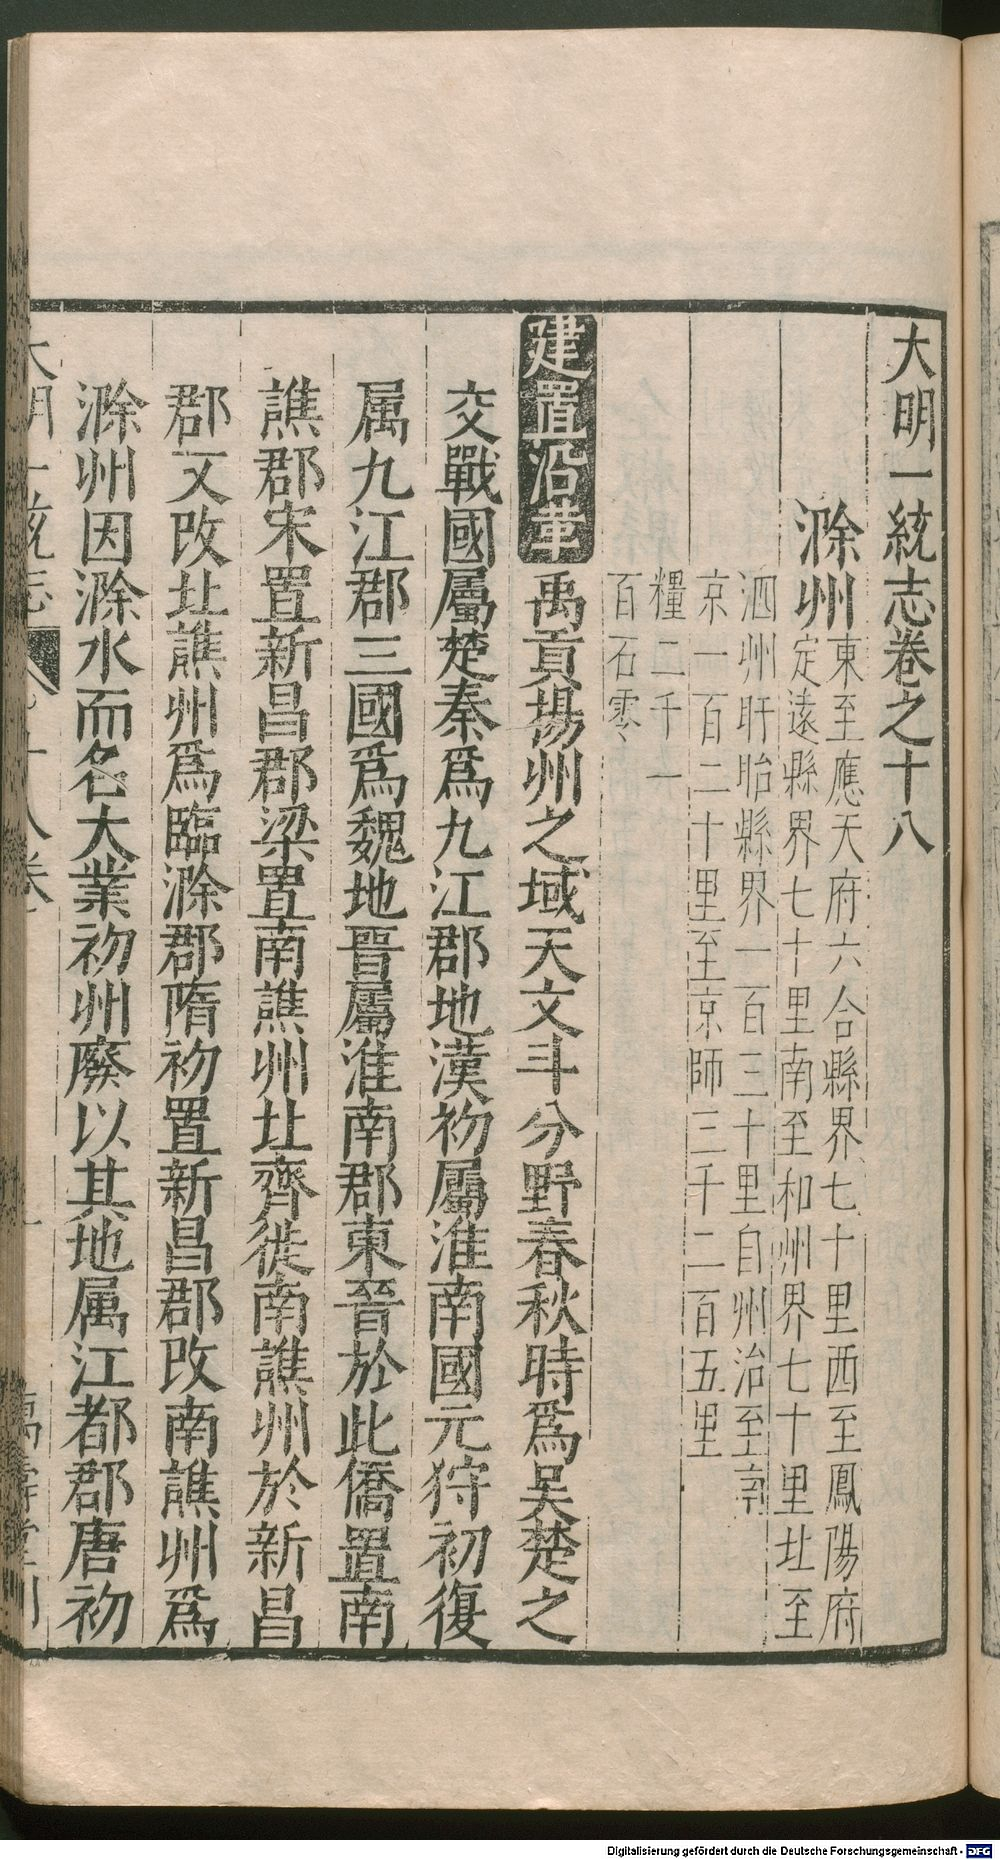 大明一統志卷之十八
滁州
東至應天府六合縣界七十里西至鳳陽府
定遠縣界七十里南至和州界七十里北至
泗州盱眙縣界一百三十里自州治至南
京一百二十里至京師三千二百五里
糧二千一
百石零
建置沿革禹貢揚州之域天文斗分野春秋時爲吴楚之
交戰國屬楚秦爲九江郡地漢初屬淮南國元狩初復
属九江郡三國爲魏地晋屬淮南郡東晉於此僑置南
譙郡宋置新昌郡梁置南譙州北齊徙南譙州於新昌
郡又改北譙州爲臨滁郡隋初置新昌郡改南譙州爲
滁州因滁水而名大業初州廢以其地属江都郡唐初
大明一統志
十八卷
一
萬壽堂刊
Digitalisierung gefördert durch die Deutsche Forschungsgemeinschaft - DFG